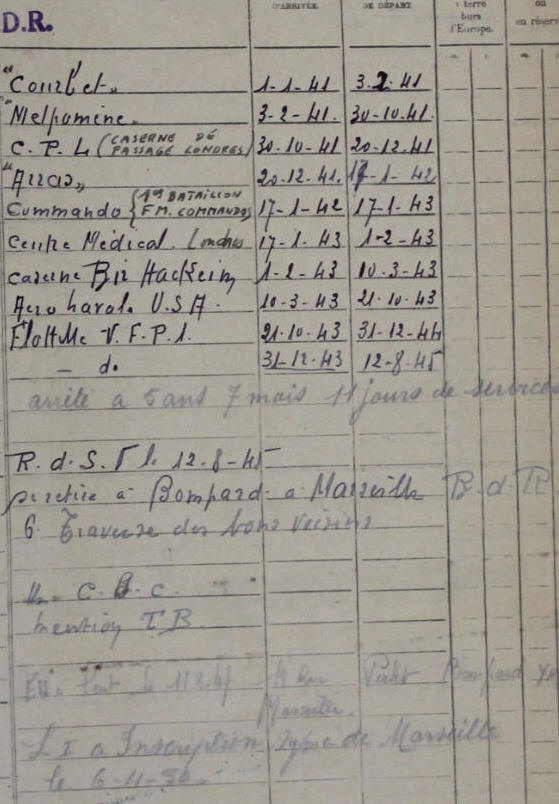 D.R.
D'ARRIVÉE. DE DÉPART. à terre hors d'Europe. ou en réserve
"Courbet" 1-1-41 3.2.41
"Melpomène" 3-2-41. 30-10-41.
C.P.L (CASERNE DE PASSAGE LONDRES) 30-10-41 20-12-41
"Arras" 20-12-41. 17-1-42
Commando {1er BATAILLON F.M. COMMANDOS} 17-1-42 17-1-43
Centre Médical. Londres 17-1-43 1-2-43
caserne Bir Hackeim 1-2-43 10-3-43
Aéro navale U.S.A. 10-3-43 21-10-43
Flottille V.F.P.1. 21-10-43 31-12-44
— do 31-12-43 12-8-45
arrêté à 5 ans 7 mois 11 jours de services
R.d.S.F le 12-8-45
se retire à Bompard à Marseille B.d.R
6 Traverse des bons voisins
C.B.C.
mention T B
le 11 2.47 Bompard
Marseille.
à Inscription de Marseille
le 6-11-50